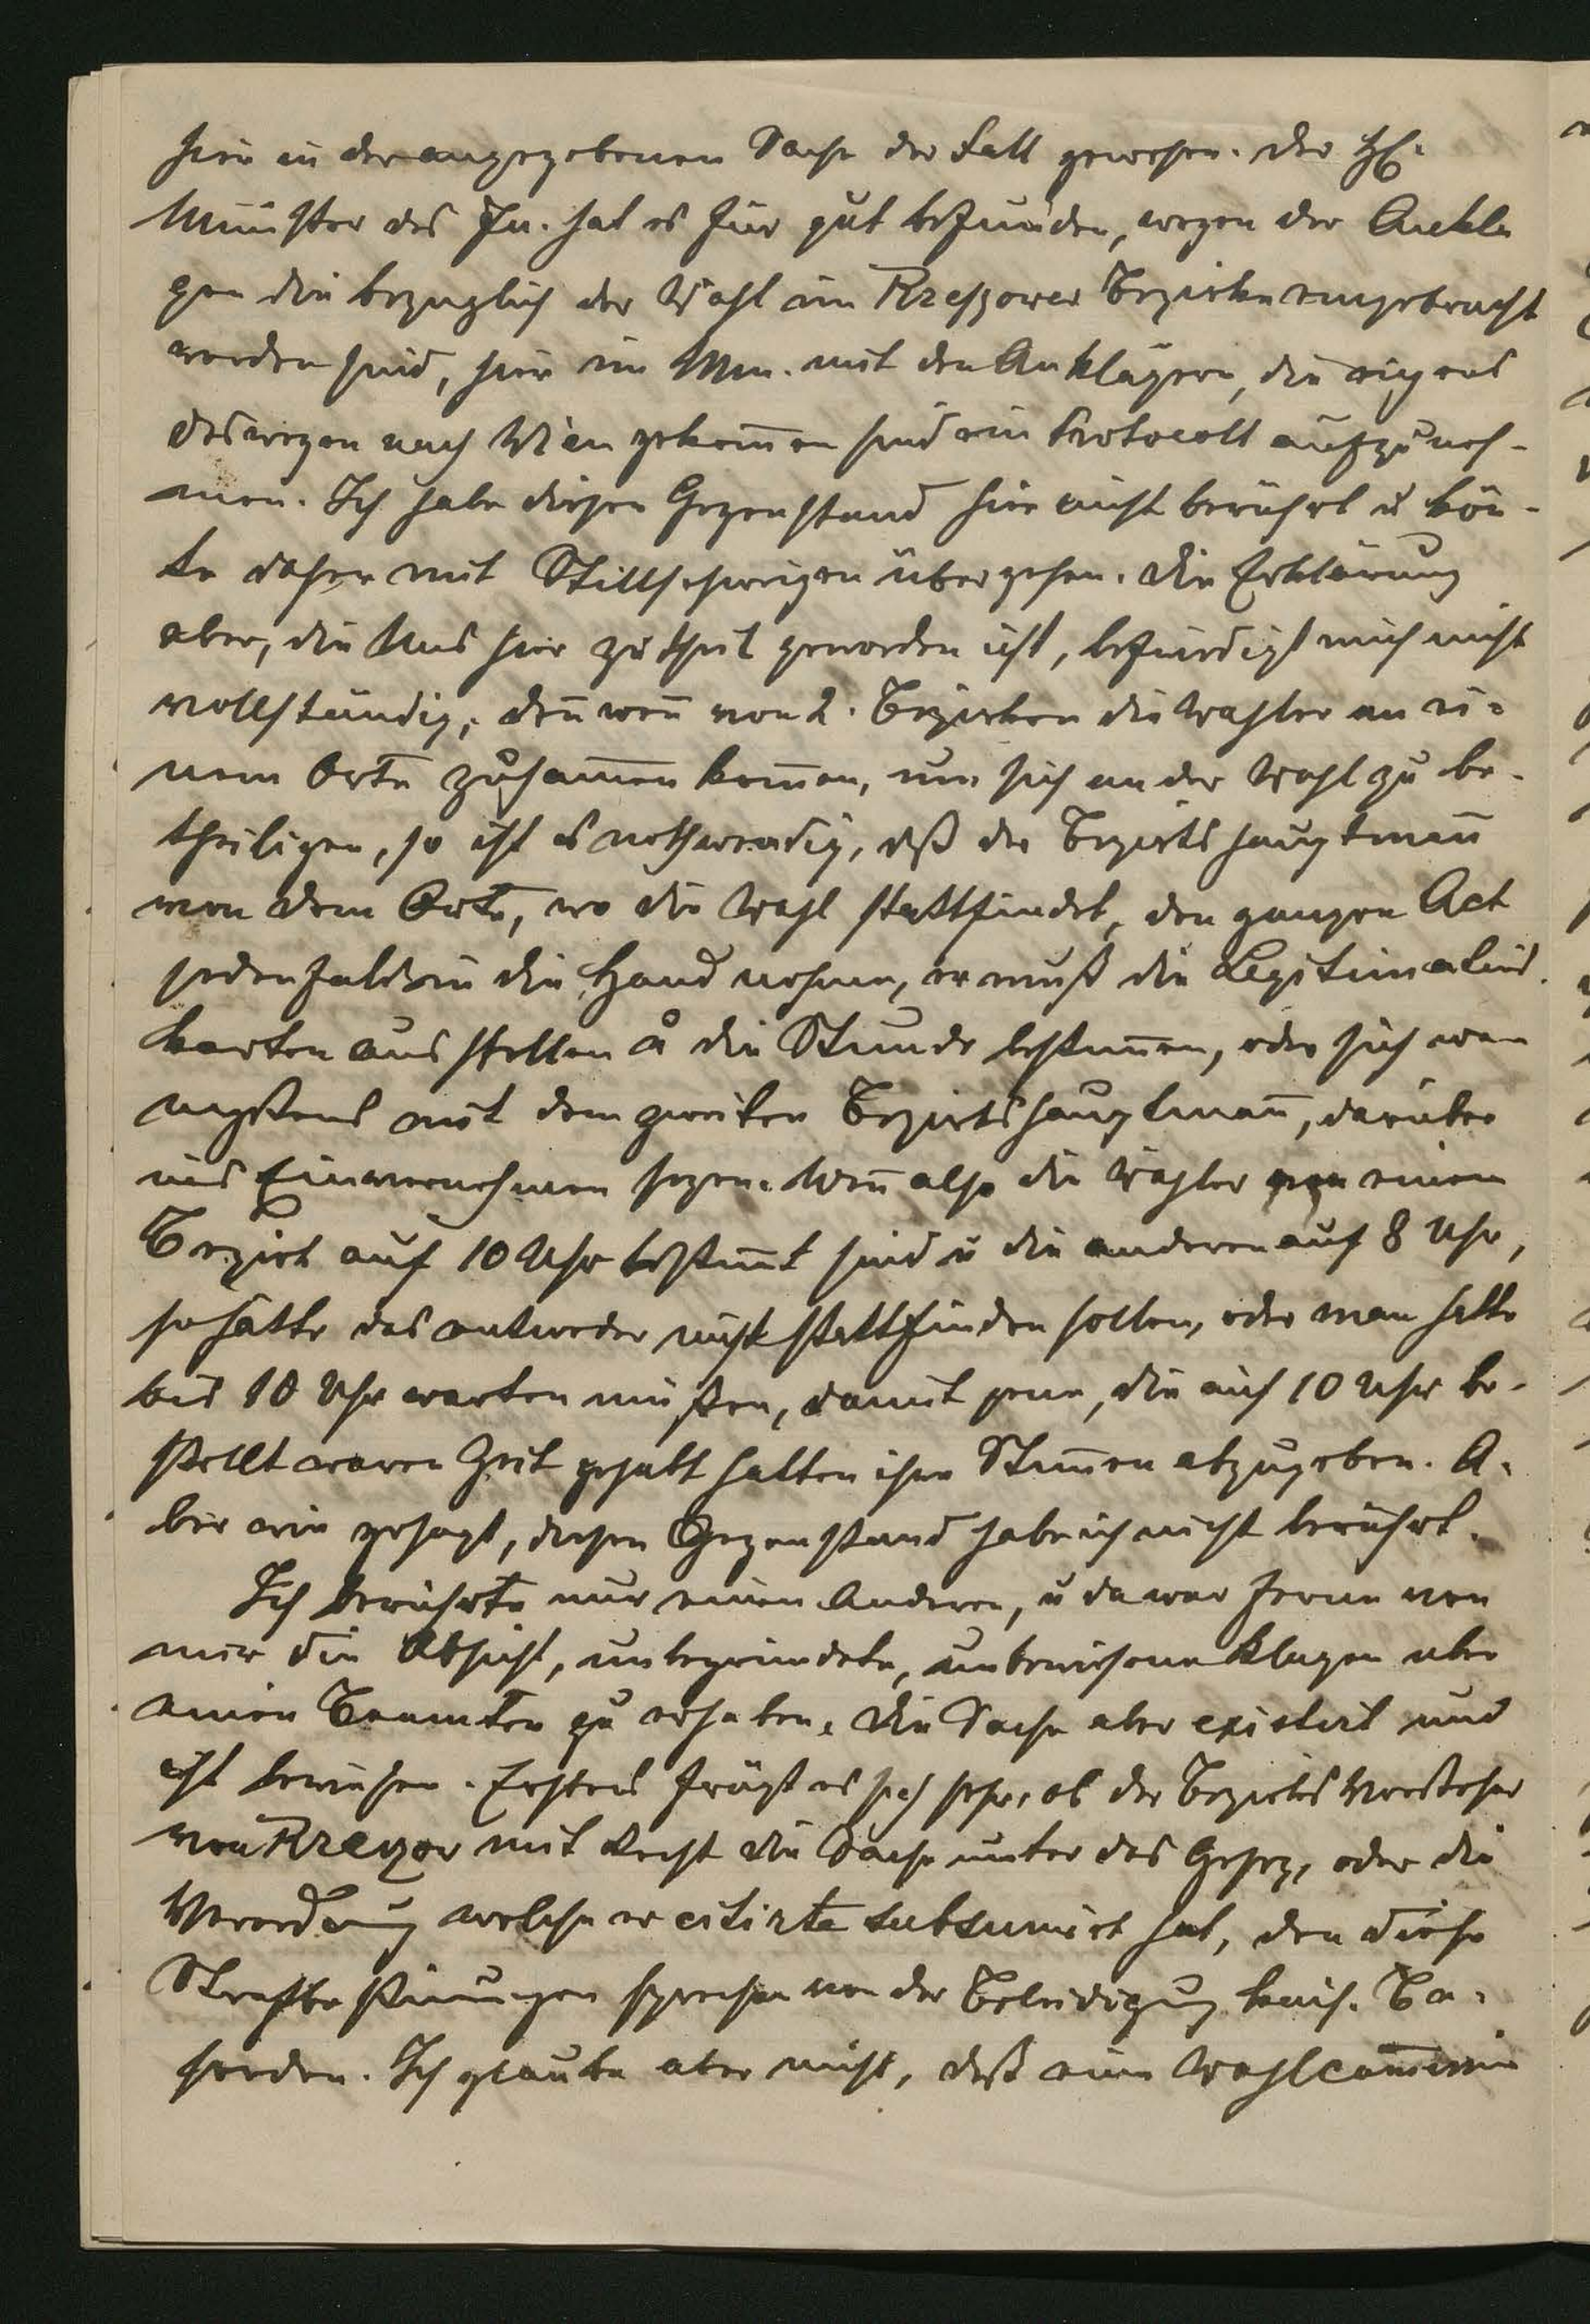 hier in der angegebenen Sache der Fall gewesen. Der H.
Minister des In. hat es für gut befunden, wegen der Ankla
gen die bezuglich der Wahl im Rzeszower Bezirke eingebracht
worden sind, hier im Min. mit den Anklägern, die eigens
deswegen nach Wien gekom̅en sind ein Protocoll aufzuneh-
men. Ich habe diesen Gegenstand hier nicht berührt u kön-
te daher mit Stillschweigen übergehen. Die Erklärung
aber, die Uns hier zu theil geworden ist, befriedigt mich nicht
vollständig, den̅ wen̅ von 2. Bezirken die Wahler an ei-
nem Orte zusam̅enkom̅en, um sich an der Wahl zu be-
theiligen, so ist es nothwendig, daß der Bezirkshauptman̅
von dem Orte, wo die Wahl stattfindet, den ganzen Act
jedenfalls in die Hand nehme, er muß die Legitimations
karten ausstellen u die Stunde bestim̅en, oder sich we
nigstens mit dem zweiten Bezirkshauptman̅, darüber
ins Einvernehmen sezen. Wen̅ also die Wähler von einem
Bezirk auf 10 Uhr bestim̅t sind u die anderen auf 8 Uhr,
so hätte das entweder nicht stattfinden sollen, oder man hätte
bis 10 Uhr warten müßen, damit jene, die auf 10 Uhr be-
stellt waren Zeit gehabt hätten ihre Stim̅en abzugeben. A-
ber wie gesagt, diesen Gegenstand habe ich nicht berührt.
Ich berührte nur einen Anderen, u da war ferne von
mir die Absicht, unbegründete, unbewiesene Klagen uber
einen Beamten zu erheben. Die Sache aber existirt und
ist bewiesen. Erstens frägt es sich sehr, ob der Bezirks Vorsteher
von Rzeszow mit Recht die Sache unter das Gesez, oder die
Verordnung welche er citirte subsumirt hat, den diese
Strafbestim̅ungen sprechen von der Beleidigung kais. Be-
horden. Ich glaube aber nicht, daß eine Wahlcom̅issio